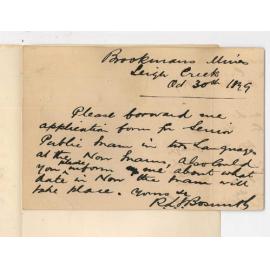 Brookmans Mine
Leigh Creek
Oct 30th 1899
Please forward me
application form for Senior
Public Exam in two Languages
at the Nov Exams, also could
you please inform me about what
date in Nov the Exam will
take place. Yours